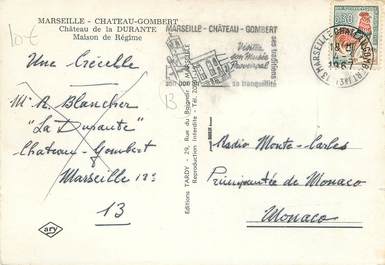 10€
MARSEILLE - CHATEAU-GOMBERT
Château de la DURANTE
Maison de Régime
Une Crécelle
Mme R. Blancher
"La Durante"
Chateau-Gombert
Marseille 13e
13
ary
Editions TARDY - 29, Rue du Baignoir - MARSEILLE
Reproduction Interdite - Tél.
MARSEILLE - CHÂTEAU - GOMBERT
Visitez
son Musée
Provençal
ses traditions
son bon air
sa tranquillité
B
0,30
13 MARSEILLE CHATEAU-GOMBERT
1967
Radio Monte-Carlo
Principauté de Monaco
Monaco